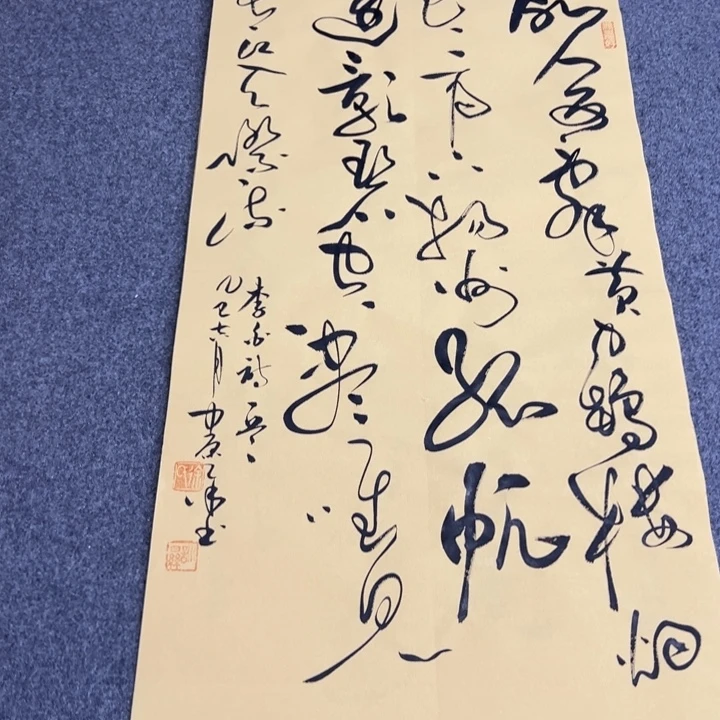 故人西辞黄鹤楼烟
花三月下扬州孤帆
远影碧空尽唯见
长江天际流
李白诗一首
乙巳六月 中原 书